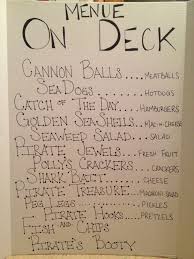 MENUE
ON DECK
CANNON BALLS....MEATBALLS
SEADOGS...........HOTDOGS
CATCH OF THE DAY....HAMBURGERS
GOLDEN SEASHELLS....MAC-N-CHEESE
SEAWEED SALAD.....SALAD
PIRATE JEWELS.....FRESH FRUIT
POLLY'S CRACKERS.....CRACKERS
SHARK BAIT......CHEESE
PIRATE TREASURE....MACARONI SALAD
PEG LEGS.........PICKLES
PIRATE HOOKS.....PRETZELS
FISH AND CHIPS
PIRATE'S BOOTY